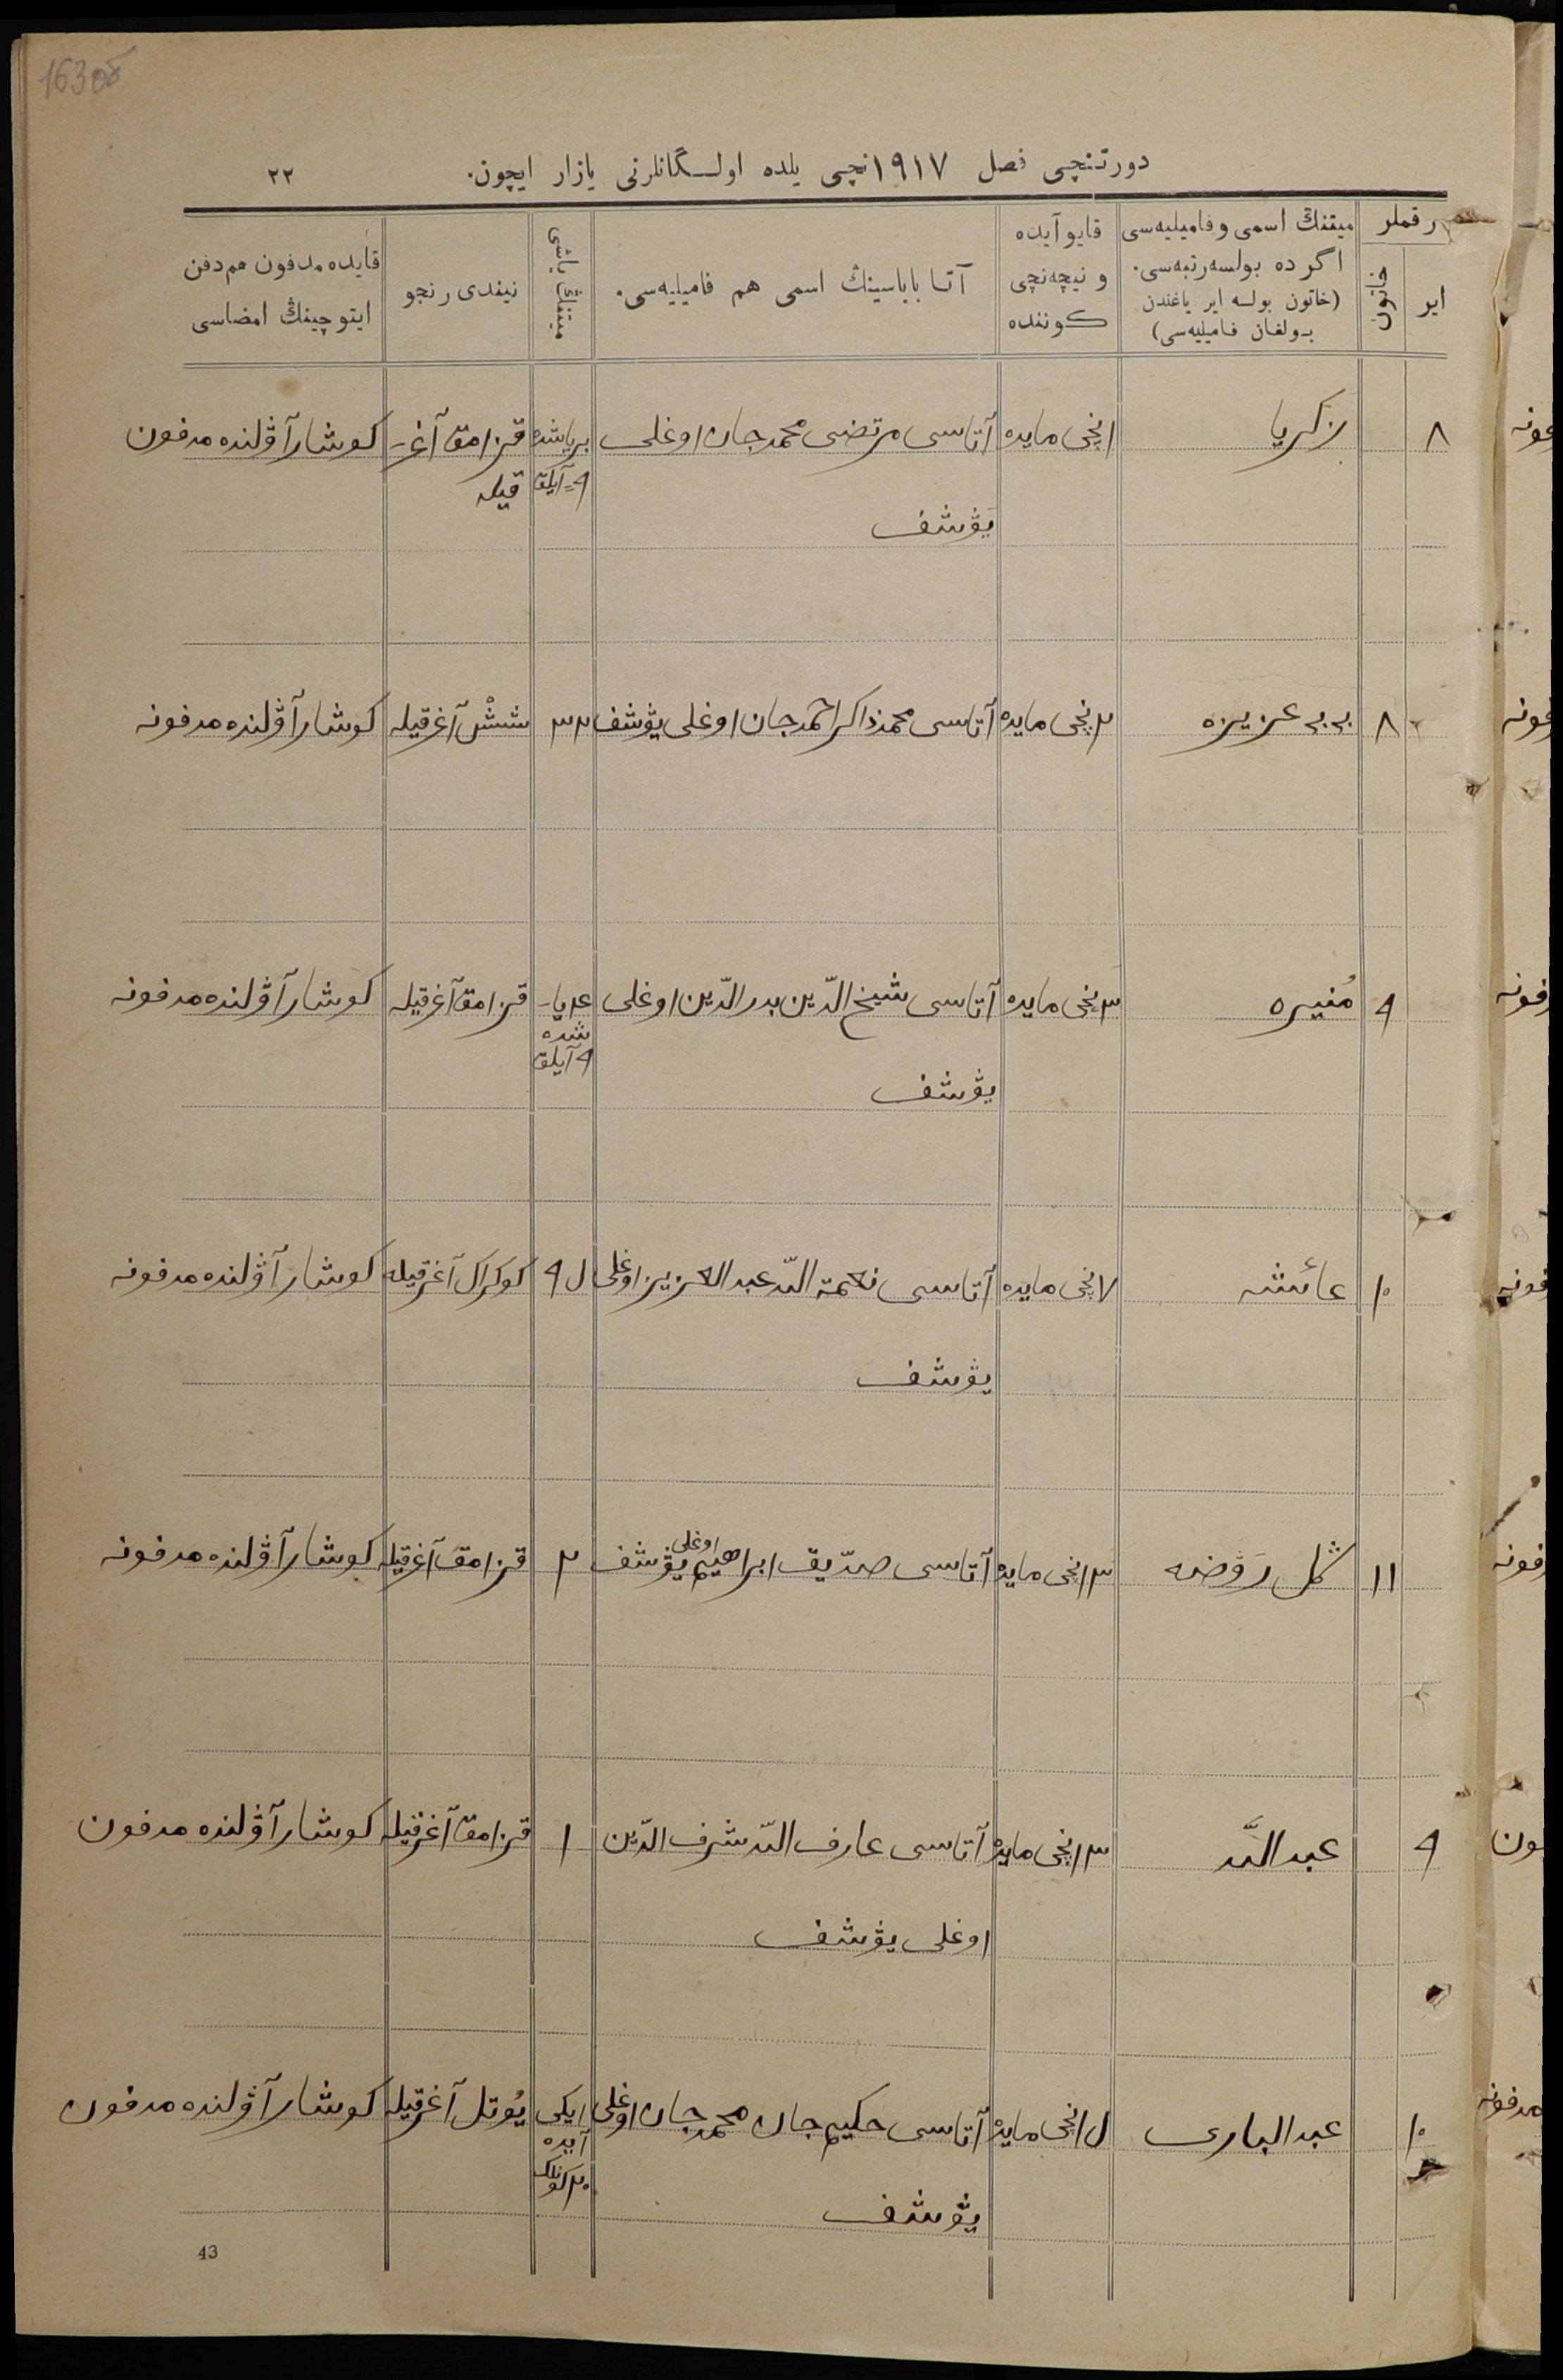 163 об
دورتنچی فصل ۱۹۱۷نچی یلده اولـگانلرنی یازار ایچون.
۲۲
رقملر
ایر
خاتون
میتنڭ اسمی وفامیلیه‌سی
اگر ده بولسه رتبه‌سی.
(خاتون بولسه ایر یاغندن
بـولغان فـامیلیه‌سی)
قایو آیده
و نیچه‌نچی
کوننده
آتـا باباسینڭ اسمی هم فامیلیه‌سی.
میتنڭ یاشی
نیندی رنجو
قایده مدفون هم دفن
ایتوچینڭ امضاسی
۸ زکریا ۱نچی مایده آتاسی مرتضی محمدجان اوغلی بریاشده قزامق آغر- کوشار آۋلنده مدفون
۹ آیلق قیله
یۋشف
۸ بی بی عزیزه ۲نچی مایده آتاسی محمدذاکر احمدجان اوغلی یۋشف ۳۲ شش آغرقیله کوشار آۋلنده مدفونه
۹ مُنیره ۳نچی مایده آتاسی شیخ الدّین بدر الدّین اوغلی ۴ یا- قزامق آغرقیله کوشار آۋلنده مدفونه
شده
۹ آیلق
یۋشف
۱۰ عائشه ۷نچی مایده آتاسی نعمة اللّه عبد العزیز اوغلی ۵۹ کوکراک آغرقیله کوشار آۋلنده مدفونه
یۋشف
۱۱ گل رَوْضه ۱۳نچی مایده آتاسی صدّیق ابراهیم اوغلی یۋشف ۲ قزامق آغرقیله کوشار آۋلنده مدفونه
۹ عبد اللّه ۱۳نچی مایده آتاسی عارف اللّه شرف الدّین ۱ قزامق آغرقیله کوشار آۋلنده مدفون
اوغلی یۋشف
۱۰ عبد الباری ۱۵نچی مایده آتاسی حکیم جان محمدجان اوغلی ایکی یُوتل آغرقیله کوشار آۋلنده مدفون
آیده
۲۰ کونلک
یۋشف
43